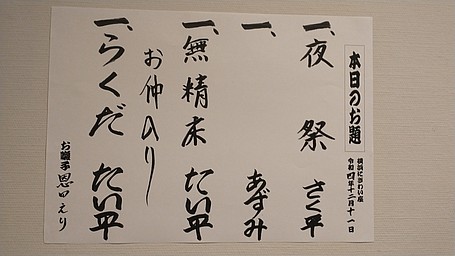 本日のお題
横浜にぎわい座
令和四年十二月十一日
一、夜祭 さく平
一、 あずみ
一、無精床 たい平
お仲入り
一、らくだ たい平
お囃子 恩田えり